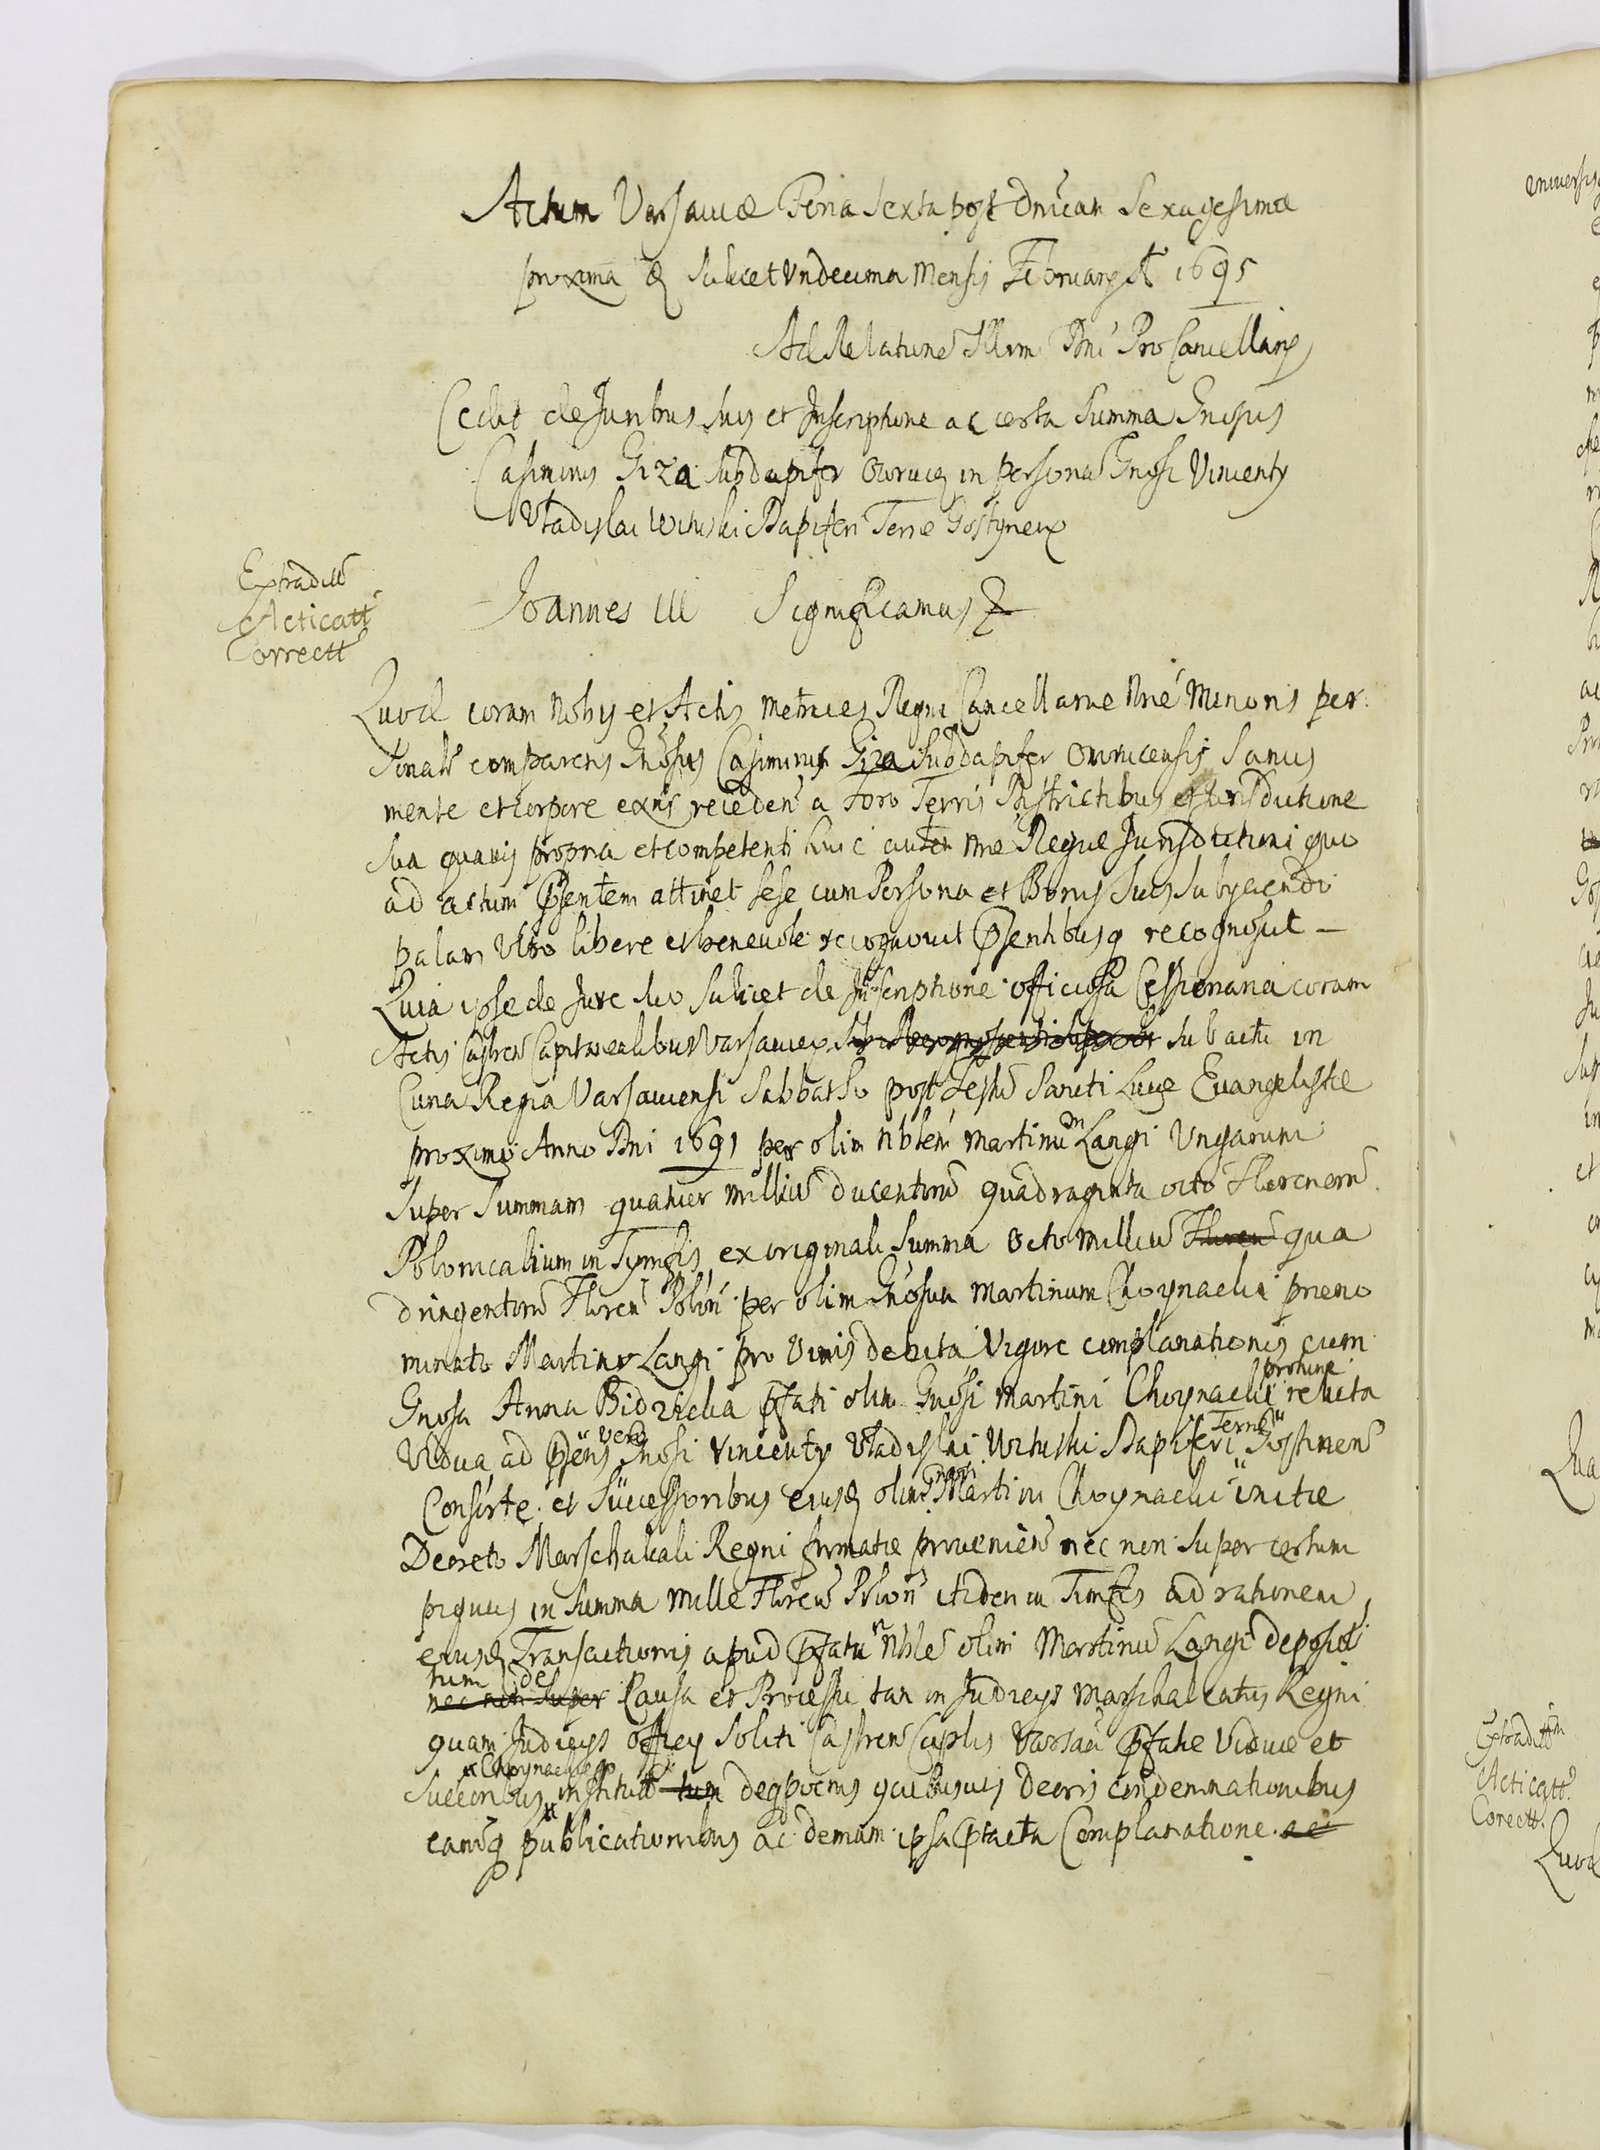 Actum Varsaviæ Feria Sexta post Dnicam Sexagesimæ
proxima & scilicet Undecima Mensis February Ao 1695
Ad Relationē Illrm Dni Pro Cancellary
Cedit de Juribus suis et Inscriptione ac certa Summa Gnosus
Casimirus Giza Subdapifer Owruc in personā Gnosi Vincenty
Vladislai Wituski Dapiferi Terræ Gostynen
Extradit
Acticatt
Correctt
Joannes III Significamus &
Quod coram Nobis et Actis Metrices Regni Cancellariæ Nræ Minoris per
sonalr comparens Gnosus Casimirus Giza Subdapifer Owrucensis Sanus
mente et corpore exns recedens a foro Terris Districtibus et Jurisdictione
sua quavis propria et competenti huic autem Nræ Regiæ Jurisdictioni quo
ad actum psentem attinet sese cum Persona et Bonis suis subyciendo
palam Ultro libere et benevole recognovit psentibusq recognoscit —
Quia ipse de Jure suo scilicet de Inscriptione officiosa Cessionaria coram
Actis Castren Capitanealibus Varsavien sub actu in
Curia Regia Varsaviensi Sabbatho post Festū Sancti Lucæ Evangelistæ
proximo Anno Dni 1691 per olim Nblem Martinum Langi Ungarum
super Summam quatuor milliū ducentorū quadraginta octo Florenorū
Polonicalium in Tymfis ex originali Summa Octo milliū Floren qua
dringentorū Floren Polon per olim Gnosum Martinum Choynacki præno
minato Martino Langi pro Vinis debita Vigore complanationis cum
Gnosa Anna Bidzicka pfati olim Gnosi Martini Choynacki protunc relicta
Vidua ad psens vero Gnosi Vincenty Vladislai Wituski Dapiferi Terræ Gostinen
Consorte et Successoribus eiusd olim Gnosi Martini Choynacki initæ
Decreto Marschalcali Regni firmatæ provenien nec non super certum
pignus in summa mille Floren Polon itidem in Timfis ad rationem
eiusd Transactionis apud pfatum Nblē olim Martinū Langi deposi
tum nec non super de Causa et Processu tam in Judicys Marschalcatus Regni
quam Judicys officy soliti Castren Caplis Varsavi pfatæ Viduæ et
Succoribus Choynacki institut tum deqpocms quibusvis Decris condemnationibus
earūq publicationibus ac demum ipsa ptacta Complanatione ac